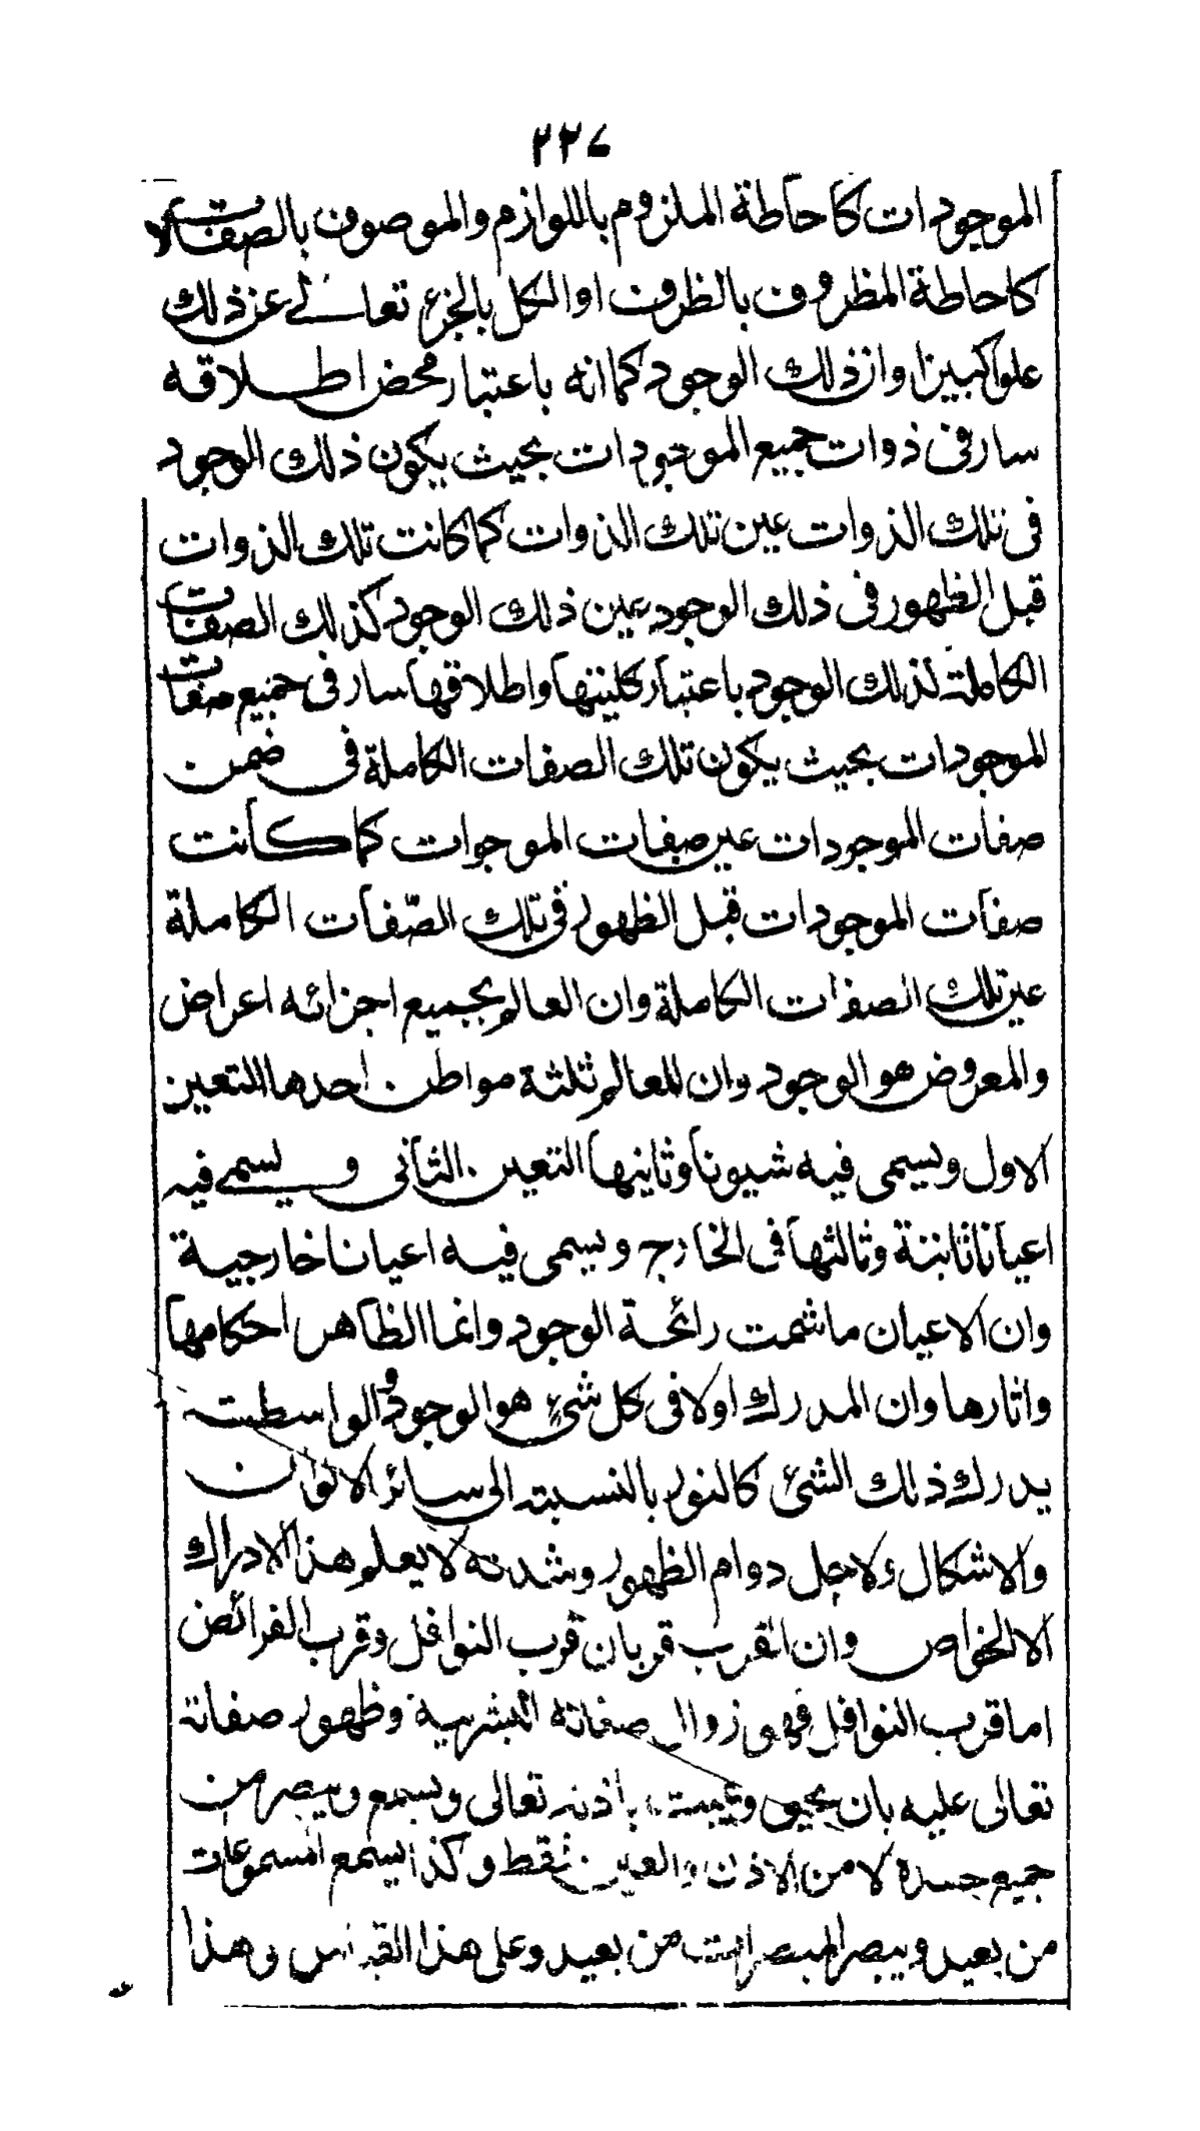 ٢٢٧
الموجودات كاحاطة الملزوم باللوازم والموصوف بالصفات لا
كاحاطة المظروف بالظرف او الكل بالجزء تعالى عن ذلك
علوا كبيرا وان ذلك الوجود كما انه باعتبار محض اطلاقه
سار فى ذوات جميع الموجودات بحيث يكون ذلك الوجود
فى تلك الذوات عين تلك الذوات كما كانت تلك الذوات
قبل الظهور فى ذلك الوجود عين ذلك الوجود كذلك الصفات
الكاملة لذلك الوجود باعتبار كليتها واطلاقها سار فى جميع صفات
الموجودات بحيث يكون تلك الصفات الكاملة فى ضمن
صفات الموجودات عين صفات الموجوات كما كانت
صفات الموجودات قبل الظهور فى تلك الصّفات الكاملة
عين تلك الصفات الكاملة وان العالم بجميع اجزائه اعراض
والمعروض هو الوجود وان للعالم ثلثة مواطن احدها التعين
الاول ويسمى فيه شيونا وثانيها التعين الثانى ويسمى فيه
اعيانا ثابتة وثالثها فى الخارج ويسمى فيه اعيانا خارجية
وان الاعيان ما شمت رائحة الوجود وانما الظاهر احكامها
واثارها وان المدرك اولا فى كل شىء هو الوجود و الواسطته
يدرك ذلك الشئ كالنور بالنسبته الى سائر الالوان
والاشكال ولاجل دوام الظهور وشدته لا يعلم هذا الادراك
الا الخواص وان القرب قربان قرب النوافل وقرب الفرائض
اما قرب النوافل فهو زوال صفاته البشرية وظهور صفاته
تعالى عليه بان يحيى ويميت باذنه تعالى ويسمع ويبصر من
جميع جسده لا من الاذن والعين فقط وكذا يسمع المسموعات
من بعيد ويبصر المبصرات من بعيد وعلى هذا القياس وهذا